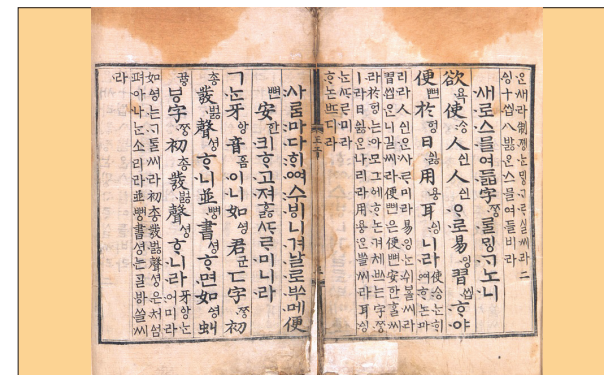 은새라制졩는ᄆᆡᇰᄀᆞᄅᆞ실씨라二
ᅀᅵᆼ十씹八바ᇙ은스믈여들비라
새로스믈여듧字ᄍᆞᆼᄅᆞᆯᄆᆡᇰᄀᆞ노니
欲욕使ᄉᆞᆼ人ᅀᅵᆫ人ᅀᅵᆫᄋᆞ로易잉習씹ᄒᆞ야
便뼌於ᅙᅥᆼ日ᅀᅵᇙ用요ᇰ耳ᅀᅵᆼ니라
使ᄉᆞᆼ는ᄒᆡ
ᅇᅧᄒᆞ논마
리라人ᅀᅵᆫ은사ᄅᆞ미라易잉는쉬ᄫᅳᆯ씨라
習씹은니길씨라便뼌은便뼌安ᅙᅡᆫᄒᆞᆯ씨
라於ᅙᅥᆼ는아모그ᅌᅦᄒᆞ논겨체ᄡᅳ는字ᄍᆞᆼ
ㅣ라日ᅀᅵᇙ은나리라用요ᇰ은ᄡᅳᆯ씨라耳ᅀᅵᆼ
는ᄯᆞᄅᆞ미라
ᄒᆞ논ᄠᅳ디라
사ᄅᆞᆷ마다ᄒᆡᅇᅧ수ᄫᅵ니겨날로ᄡᅮ메便
뼌安ᅙᅡᆫ킈ᄒᆞ고져ᄒᆞᇙᄯᆞᄅᆞ미니라
ㄱᄂᆞᆫ牙ᅌᅡᆼ音ᅙᅳᆷ이니如ᅀᅧᆼ君군ㄷ字ᄍᆞᆼ初
총發버ᇙ聲셩ᄒᆞ니並뼝書셩ᄒᆞ면如ᅀᅧᆼ虯
끃ᄫ字ᄍᆞᆼ初총發버ᇙ聲셩ᄒᆞ니라
牙ᅌᅡᆼᄂᆞᆫ
어미라
如ᅀᅧᆼ는ᄀᆞᄐᆞᆯ씨라初총發버ᇙ聲셩은처ᅀᅥᆷ
펴아나ᄂᆞᆫ소리라並뼝書셩는ᄀᆞᆯᄫᅡᄡᅳᆯ씨
라